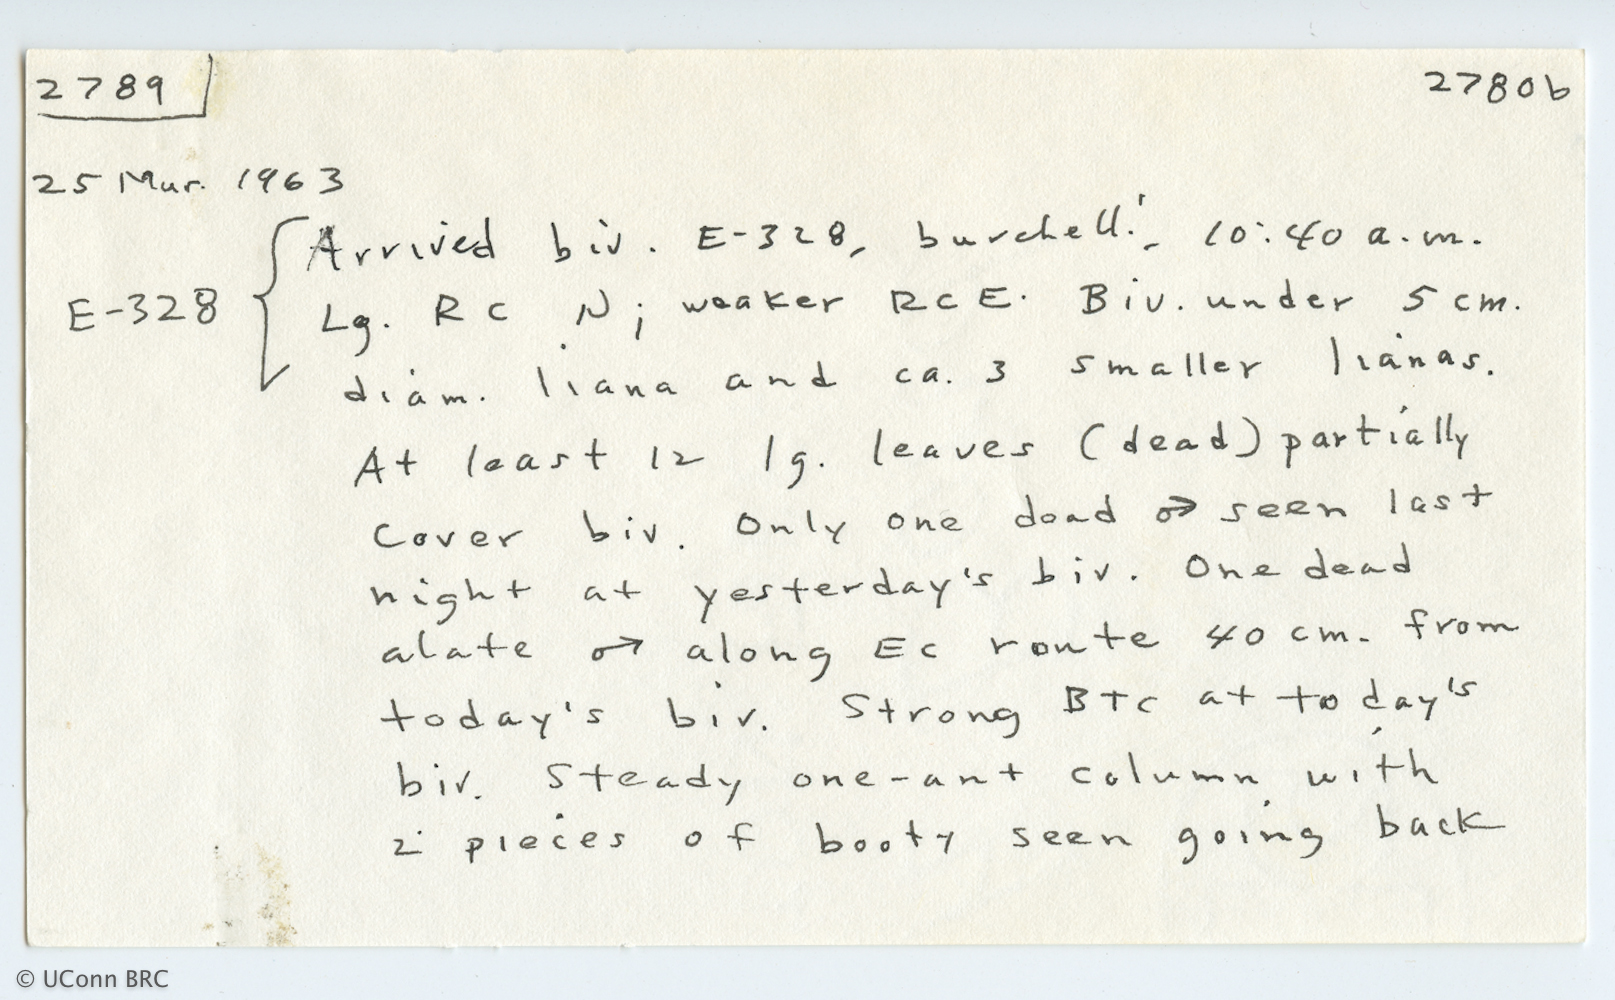 2789
2780b
25 Mar. 1963
E-328
Arrived biv. E-328, burchelli, 10:40 a.m.
Lg. RC N; weaker RC E. Biv. under 5 cm.
diam. liana and ca. 3 smaller lianas.
At least 12 lg. leaves (dead) partially
cover biv. Only one dead ♂ seen last
night at yesterday's biv. One dead
alate ♂ along EC route 40 cm. from
today's biv. Strong BTC at today's
biv. Steady one-ant column with
2 pieces of booty seen going back
© UConn BRC